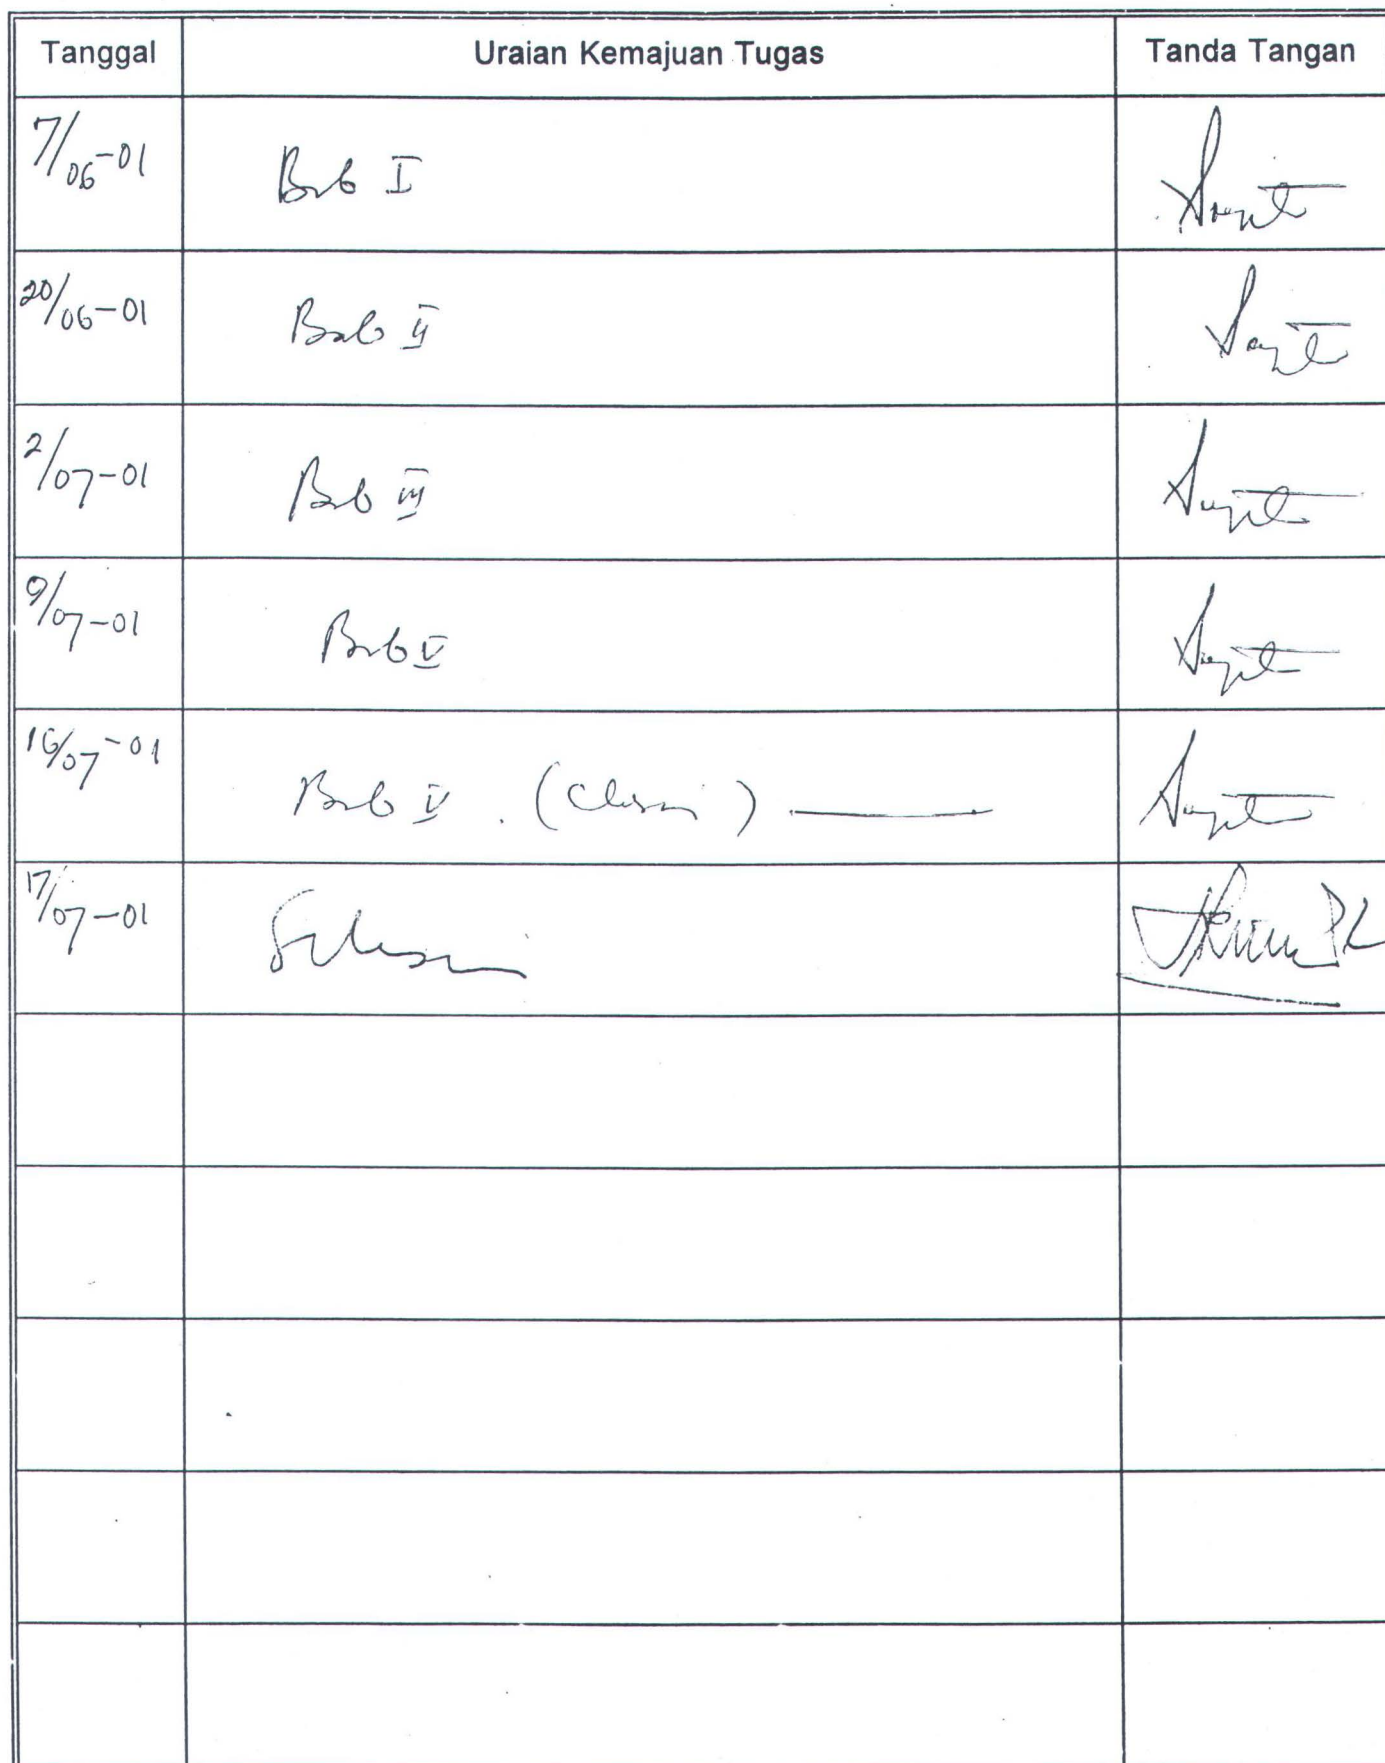 Tanggal Uraian Kemajuan Tugas Tanda Tangan
7/06-01 Bab I
20/06-01 Bab II
2/07-01 Bab III
9/07-01 Bab V
16/07-01 Bab V. ( )
17/07-01 Selesai